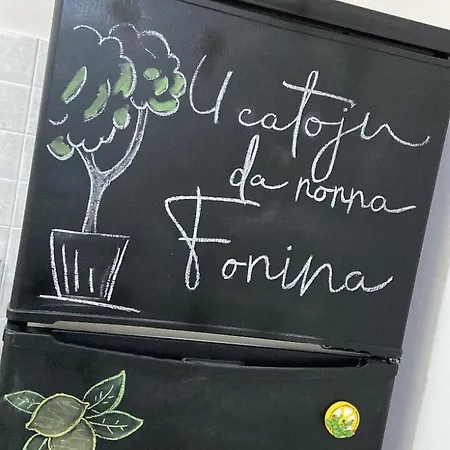 U catoju
da nonna
Fonina